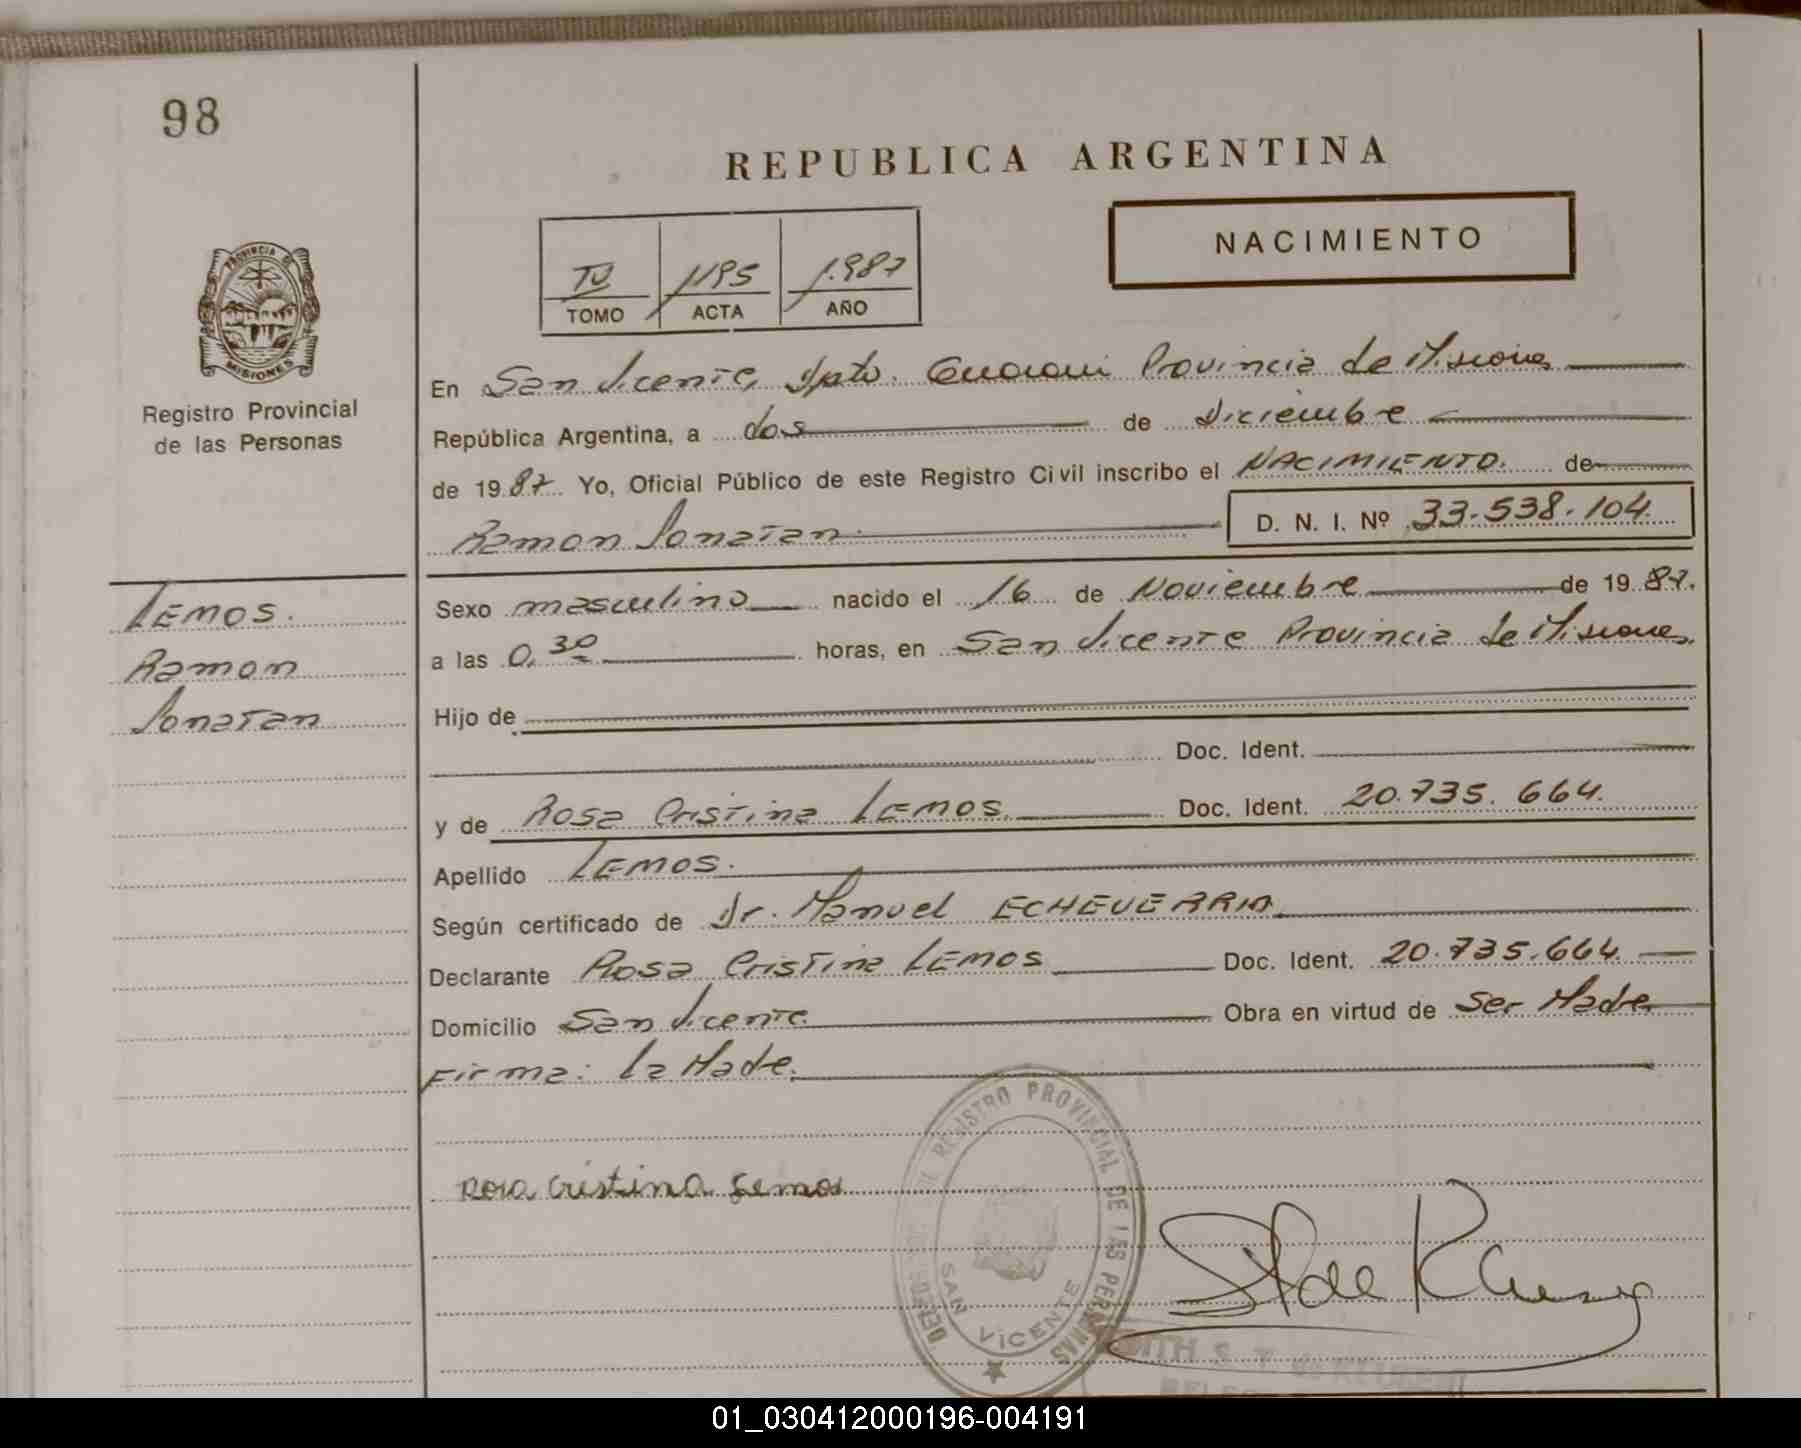 98
REPUBLICA ARGENTINA
NACIMIENTO
IV 1195 1.987
TOMO ACTA AÑO
PROVINCIA DE
MISIONES
Registro Provincial
de las Personas
En San Vicente, Dpto. Guarani Provincia de Misiones
República Argentina, a dos de Diciembre
de 1987. Yo, Oficial Público de este Registro Civil inscribo el NACIMIENTO. de
Ramon Jonatan D. N. I. Nº 33.538.104
LEMOS.
Ramon
Jonatan
Sexo masculino nacido el 16 de Noviembre de 1987.
a las 0,30 horas, en San Vicente Provincia de Misiones.
Hijo de
Doc. Ident.
y de Rosa Cristina LEMOS. Doc. Ident. 20.735.664.
Apellido LEMOS.
Según certificado de Dr. Manuel ECHEVERRIA.
Declarante Rosa Cristina LEMOS Doc. Ident. 20.735.664.
Domicilio San Vicente. Obra en virtud de Ser Madre
Firma: La Madre.
Rosa Cristina Lemos
REGISTRO PROVINCIAL DE LAS PERSONAS
SAN VICENTE
01_030412000196-004191